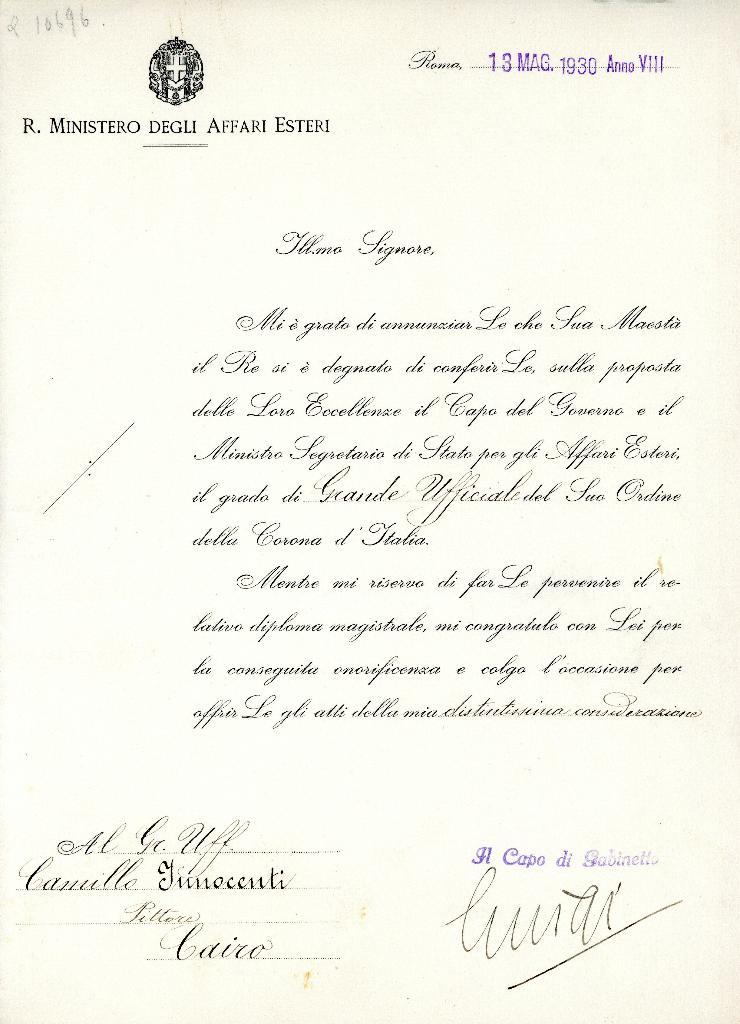 2 10696.
Roma, 13 MAG. 1930 Anno VIII
R. MINISTERO DEGLI AFFARI ESTERI
Ill.mo Signore,
Mi è grato di annunziarLe che Sua Maestà
il Re si è degnato di conferirLe, sulla proposta
delle Loro Eccellenze il Capo del Governo e il
Ministro Segretario di Stato per gli Affari Esteri,
il grado di Grande Ufficiale del Suo Ordine
della Corona d'Italia.
Mentre mi riservo di farLe pervenire il re-
lativo diploma magistrale, mi congratulo con Lei per
la conseguita onorificenza e colgo l'occasione per
offrirLe gli atti della mia distintissima considerazione
Al Gr. Uff.
Camillo Innocenti
Pittore
Cairo
Il Capo di Gabinetto